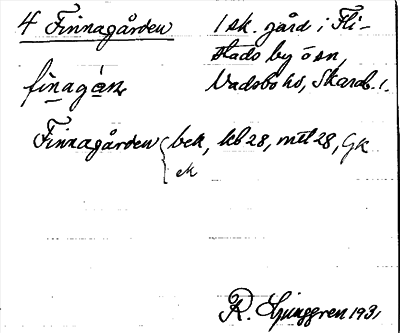 4 Finnagården 1 sk. gård i Fli-
stads by o sn,
finagán Vadsbo hd, Skarab. l.
Finnagården bek, kb 28, mtl 28, Gk
ek
R. Ljunggren 1931